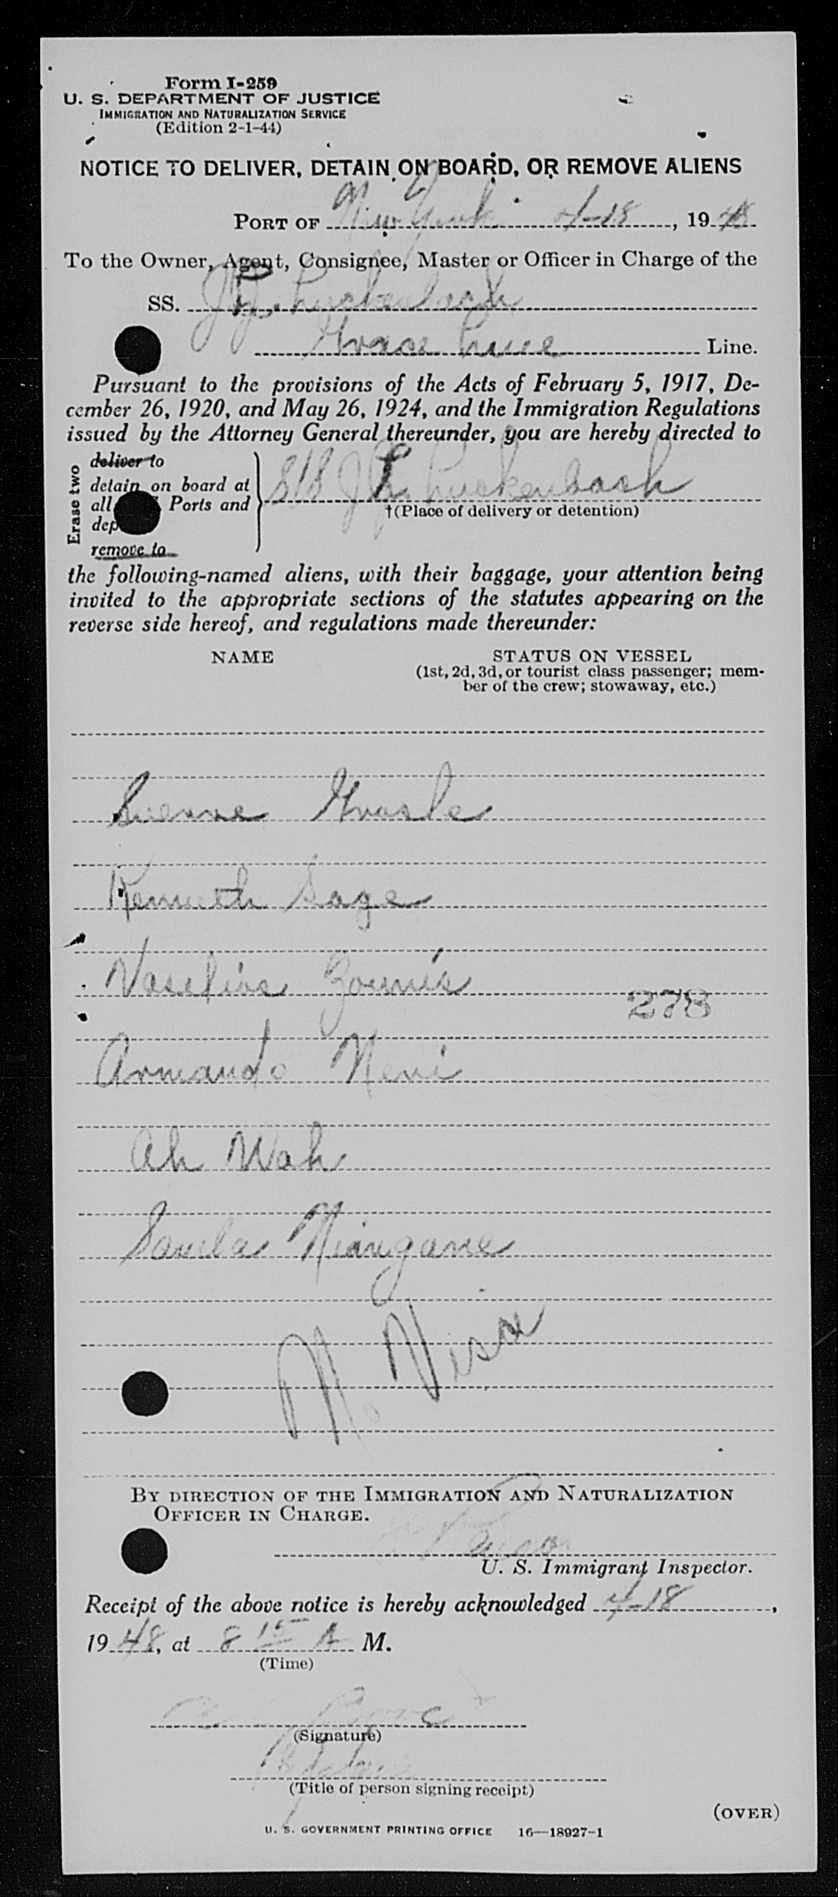 Form I-259
U. S. DEPARTMENT OF JUSTICE
IMMIGRATION AND NATURALIZATION SERVICE
(Edition 2-1-44)
NOTICE TO DELIVER, DETAIN ON BOARD, OR REMOVE ALIENS
PORT OF New York 4-18, 1948
To the Owner, Agent, Consignee, Master or Officer in Charge of the
SS. J. F. Luckenbach
Grace Line Line.
Pursuant to the provisions of the Acts of February 5, 1917, De-
cember 26, 1920, and May 26, 1924, and the Immigration Regulations
issued by the Attorney General thereunder, you are hereby directed to
Erase two
deliver to
detain on board at
all Ports and
remove to
S/S J. F. Luckenbach
†(Place of delivery or detention)
the following-named aliens, with their baggage, your attention being
invited to the appropriate sections of the statutes appearing on the
reverse side hereof, and regulations made thereunder:
NAME STATUS ON VESSEL
(1st, 2d, 3d, or tourist class passenger; mem-
ber of the crew; stowaway, etc.)
Kenneth Sage
Vasilios Zounis
278
Armando Neni
Ah Wah
BY DIRECTION OF THE IMMIGRATION AND NATURALIZATION
OFFICER IN CHARGE.
U. S. Immigrant Inspector.
Receipt of the above notice is hereby acknowledged 4-18,
1948, at 8 15 A M.
(Time)
(Signature)
(Title of person signing receipt)
(OVER)
U. S. GOVERNMENT PRINTING OFFICE 16—18927-1